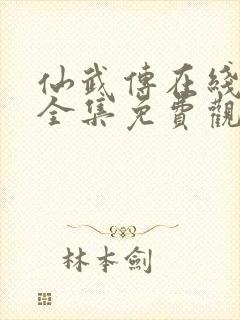 仙武傳在綫
全集免費觀
林本劍